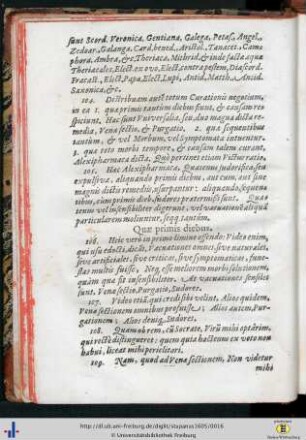 sunt Scord. Veronica, Gentiana, Galega, Petas. Angel.
Zedoar. Galanga, Card. bened. Aristol. Tanacet. Cam-
phora, Ambra, &c. Theriaca, Mithrid. & inde facta aqua
Theriacalis, Elect. ex ovo, Elect. contra pestem, Diascord.
Fracast. Elect. Papæ, Elect. Lupi, Antid. Matth. Antid.
Saxonica, &c.
104. Distribuam autem totum Curationis negotium,
in ea 1. quæ primis tantum diebus fiunt, & causam re-
spiciunt. Hac sunt Vniversalia, seu duo magna dicta re-
media, Venæ sectio, & Purgatio. 2. quæ sequentibus
tantum, & vel Morbum, vel Symptomata intuentur.
3. quæ toto morbi tempore, & causam talem curant,
Alexipharmaca dicta. Quò pertinet etiam Victus ratio.
105. Hac Alexipharmaca, Quatenus sudorifica, seu
expulsiva: aliquando primis diebus, aut cum, aut sine
magnis dictis remediis, usurpantur: aliquando, sequen-
tibus, cum primis dieb. sudores prætermissi sunt. Quate-
nus vel insensibiliter digerunt, vel vacuationē aliquā
particularem moliuntur, seqq. tantùm.
Quæ primis diebus.
106. Hîc verò in primo limine offendo: Video enim,
qui usu edocti, dicūt, Vacuationes omneis, sive naturales,
sive artificiales, sive criticas, sive symptomaticas, fune-
stas multis fuisse, Neq. esse meliorem morbi solutionem,
quàm quæ fit insensibiliter. At vacuationes sensibiles
sunt, Venæ sectio, Purgatio, Sudores.
107. Video etiā, qui credi sibi velint, Alios quidem,
Venæ sectionem omnibus profuisse; Alios autem, Pur-
gationem; Alios deniq. Sudores.
108. Quamobrem, cū Socrate, Virū mihi optarim,
qui rectè distingueret: quem quia hactenus ex voto non
habui, liceat mihi periclitari.
109. Nam, quod ad Venæ sectionem, Non videtur
mihi
http://dl.ub.uni-freiburg.de/diglit/stupanus1605/0016
© Universitätsbibliothek Freiburg